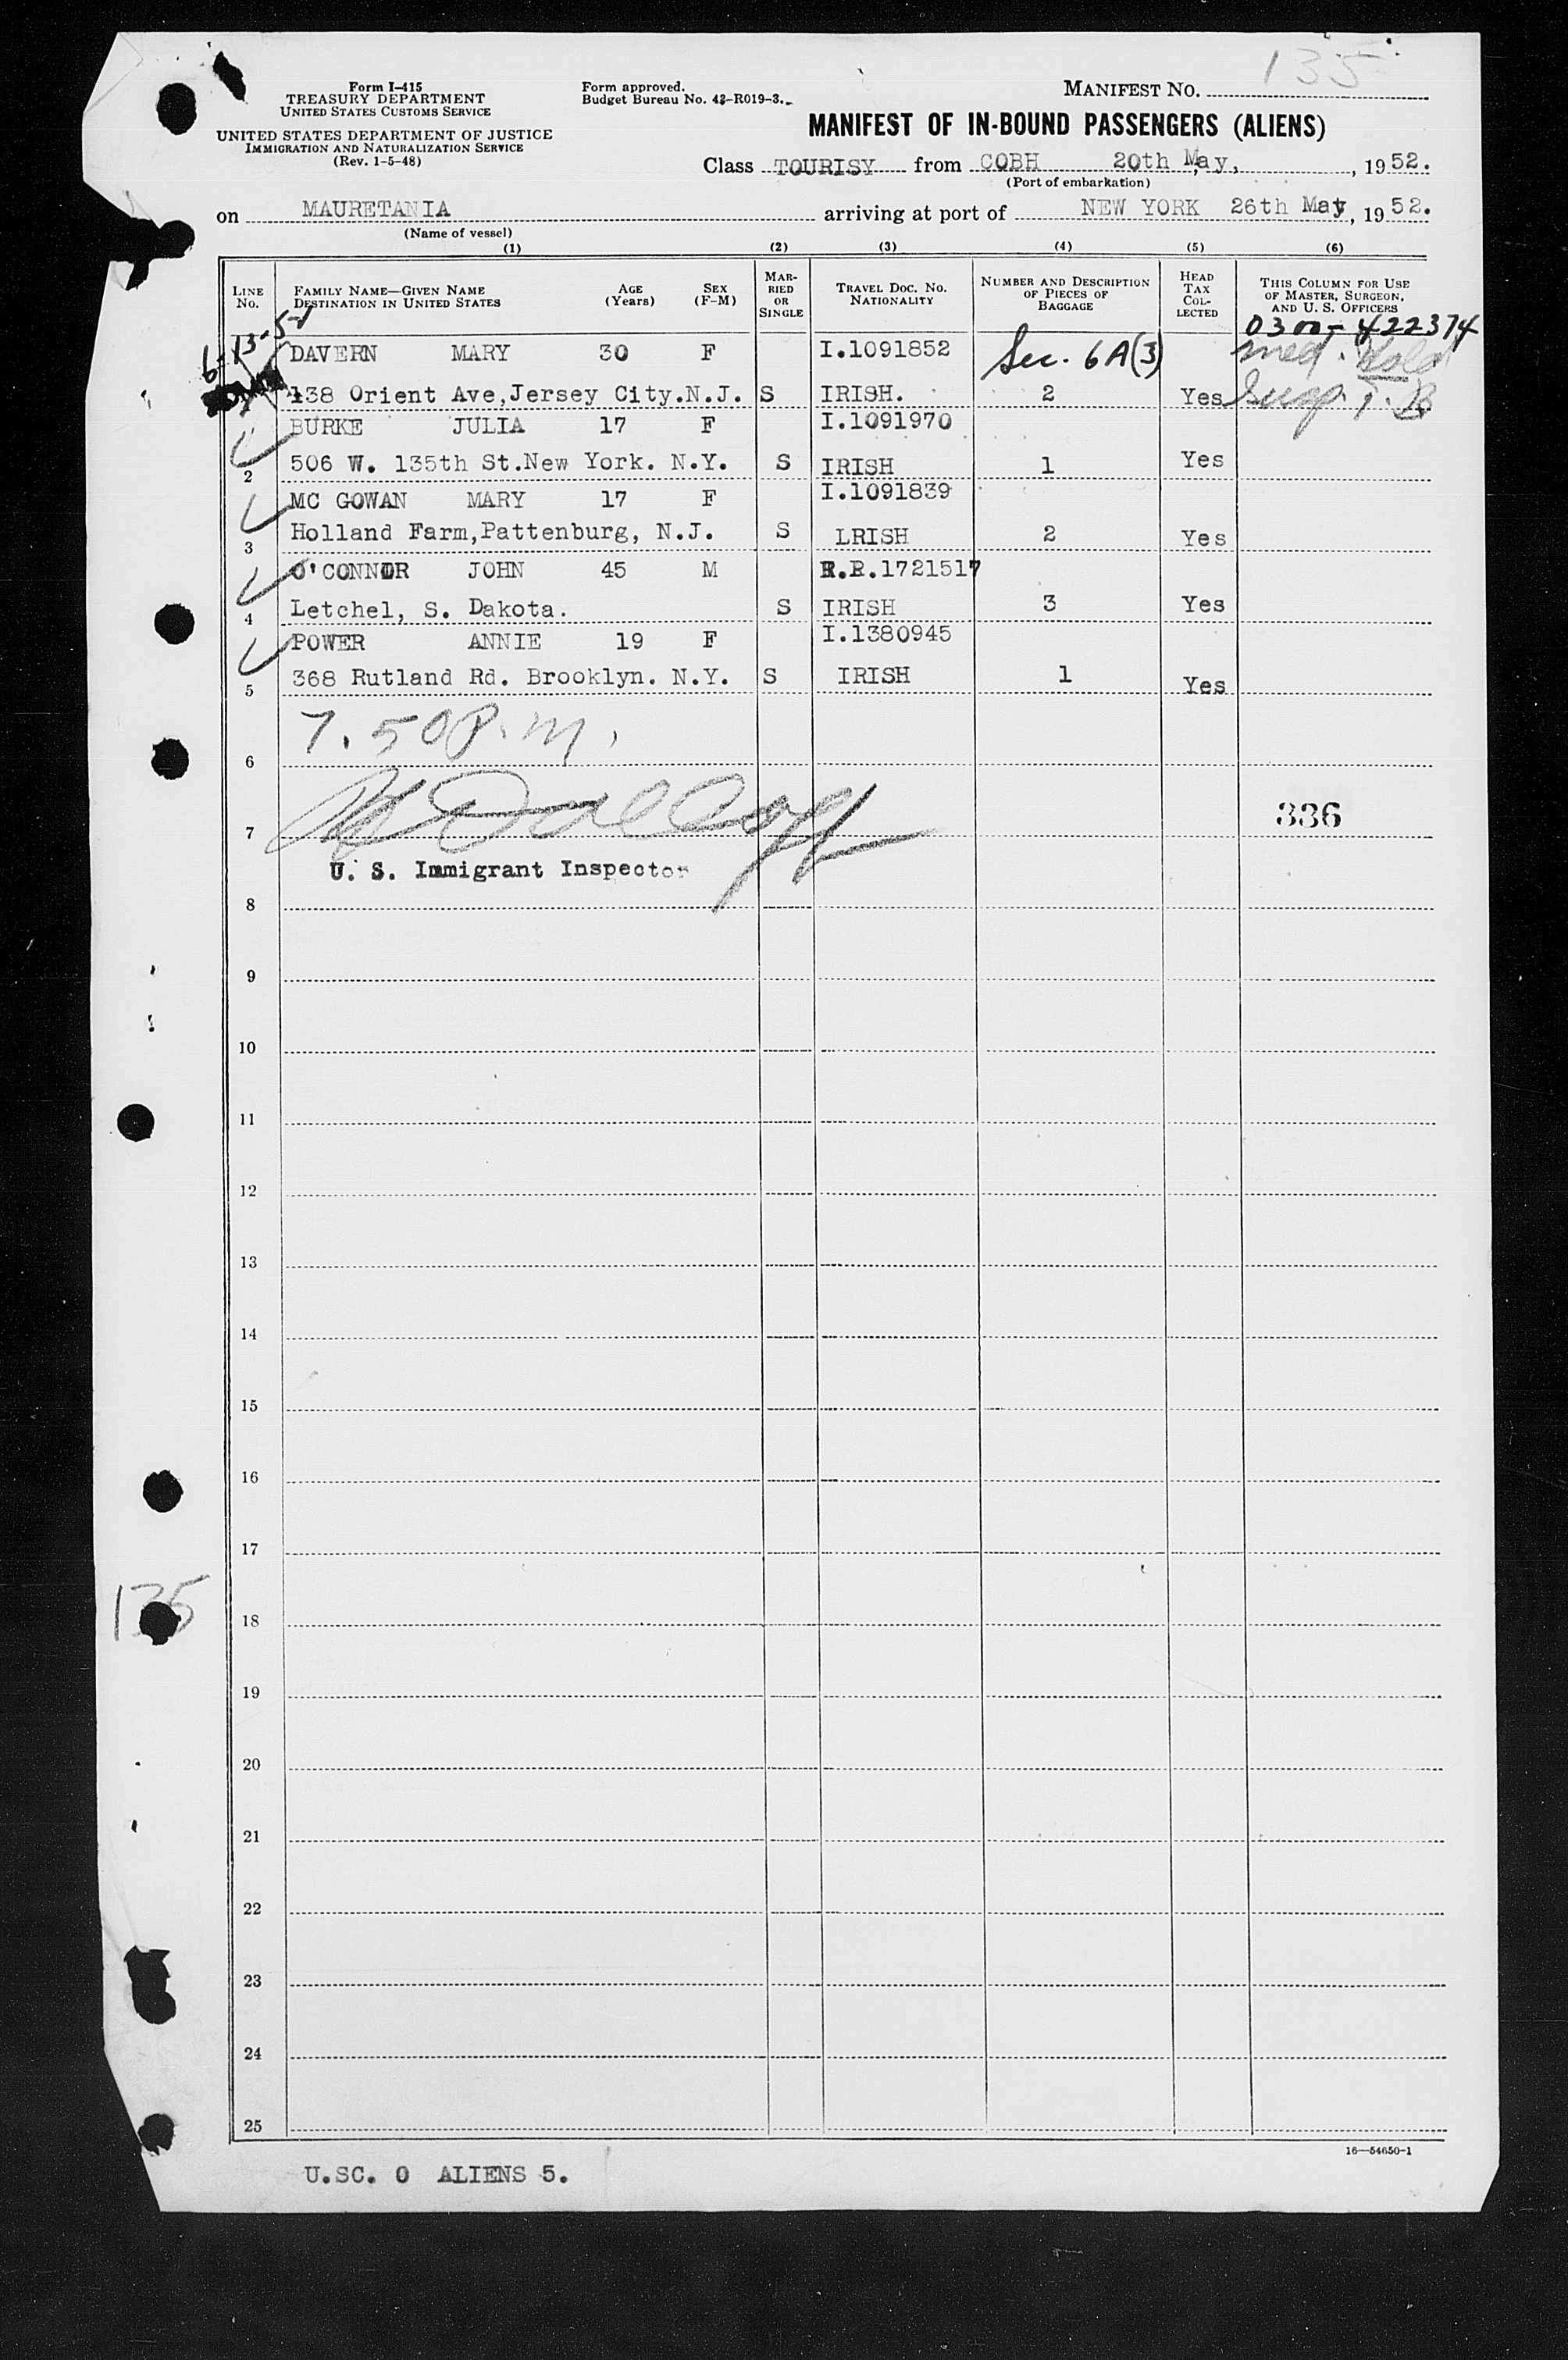 135
Form I-415
TREASURY DEPARTMENT
UNITED STATES CUSTOMS SERVICE
Form approved.
Budget Bureau No. 43-R019-3.
MANIFEST NO.
UNITED STATES DEPARTMENT OF JUSTICE
IMMIGRATION AND NATURALIZATION SERVICE
(Rev. 1-5-48)
MANIFEST OF IN-BOUND PASSENGERS (ALIENS)
Class TOURISY from COBH 20th May, , 1952.
(Port of embarkation)
on MAURETANIA arriving at port of NEW YORK 26th May, 1952.
(Name of vessel)
(1) (2) (3) (4) (5) (6)
LINE No. FAMILY NAME—GIVEN NAME DESTINATION IN UNITED STATES AGE (Years) SEX (F-M) MARRIED OR SINGLE TRAVEL DOC. NO. NATIONALITY NUMBER AND DESCRIPTION OF PIECES OF BAGGAGE HEAD TAX COLLECTED THIS COLUMN FOR USE OF MASTER, SURGEON, AND U. S. OFFICERS
0300-422374
DAVERN MARY 30 F I.1091852 Sec. 6A(3) med. Hold
138 Orient Ave,Jersey City.N.J. S IRISH. 2 Yes Susp. T.B
BURKE JULIA 17 F I.1091970
2 506 W. 135th St.New York. N.Y. S IRISH 1 Yes
MC GOWAN MARY 17 F I.1091839
3 Holland Farm,Pattenburg, N.J. S LRISH 2 Yes
O'CONNOR JOHN 45 M 1721517
4 Letchel, S. Dakota. S IRISH 3 Yes
POWER ANNIE 19 F I.1380945
5 368 Rutland Rd. Brooklyn. N.Y. S IRISH 1 Yes
7.50 P.M.
6
336
7
U. S. Immigrant Inspector
8
9
10
11
12
13
14
15
16
17
135
18
19
20
21
22
23
24
25
16—54650-1
U.SC. 0 ALIENS 5.